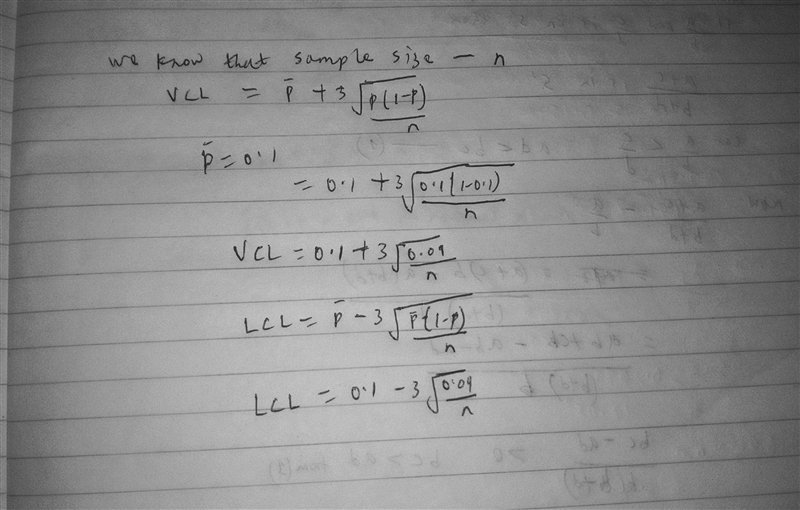 we know that sample size - n
UCL = p̄ + 3 √(p(1-p)/n)
p̄ = 0.1
= 0.1 + 3 √(0.1(1-0.1)/n)
UCL = 0.1 + 3 √(0.09/n)
LCL = p̄ - 3 √(p̄(1-p)/n)
LCL = 0.1 - 3 √(0.09/n)